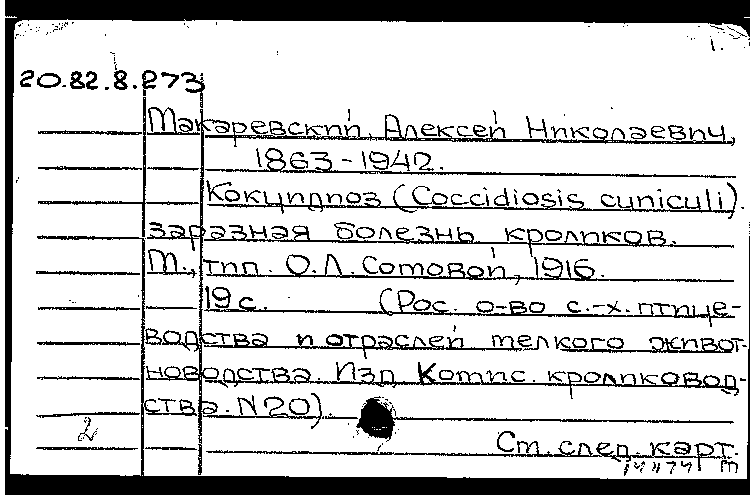 1.
20.82.8.273
Макаревский, Алексей Николаевич,
1863-1942.
Кокцидиоз (Coccidiosis cuniculi).
заразная болезнь кроликов.
М., тип. О.Л. Сомовой, 1916.
19 с. (Рос. о-во с.-х. птице-
водства и отраслей мелкого живот-
новодства. Изд Комис. кроликовод-
ства. N 20).
2
Ст. след. карт.